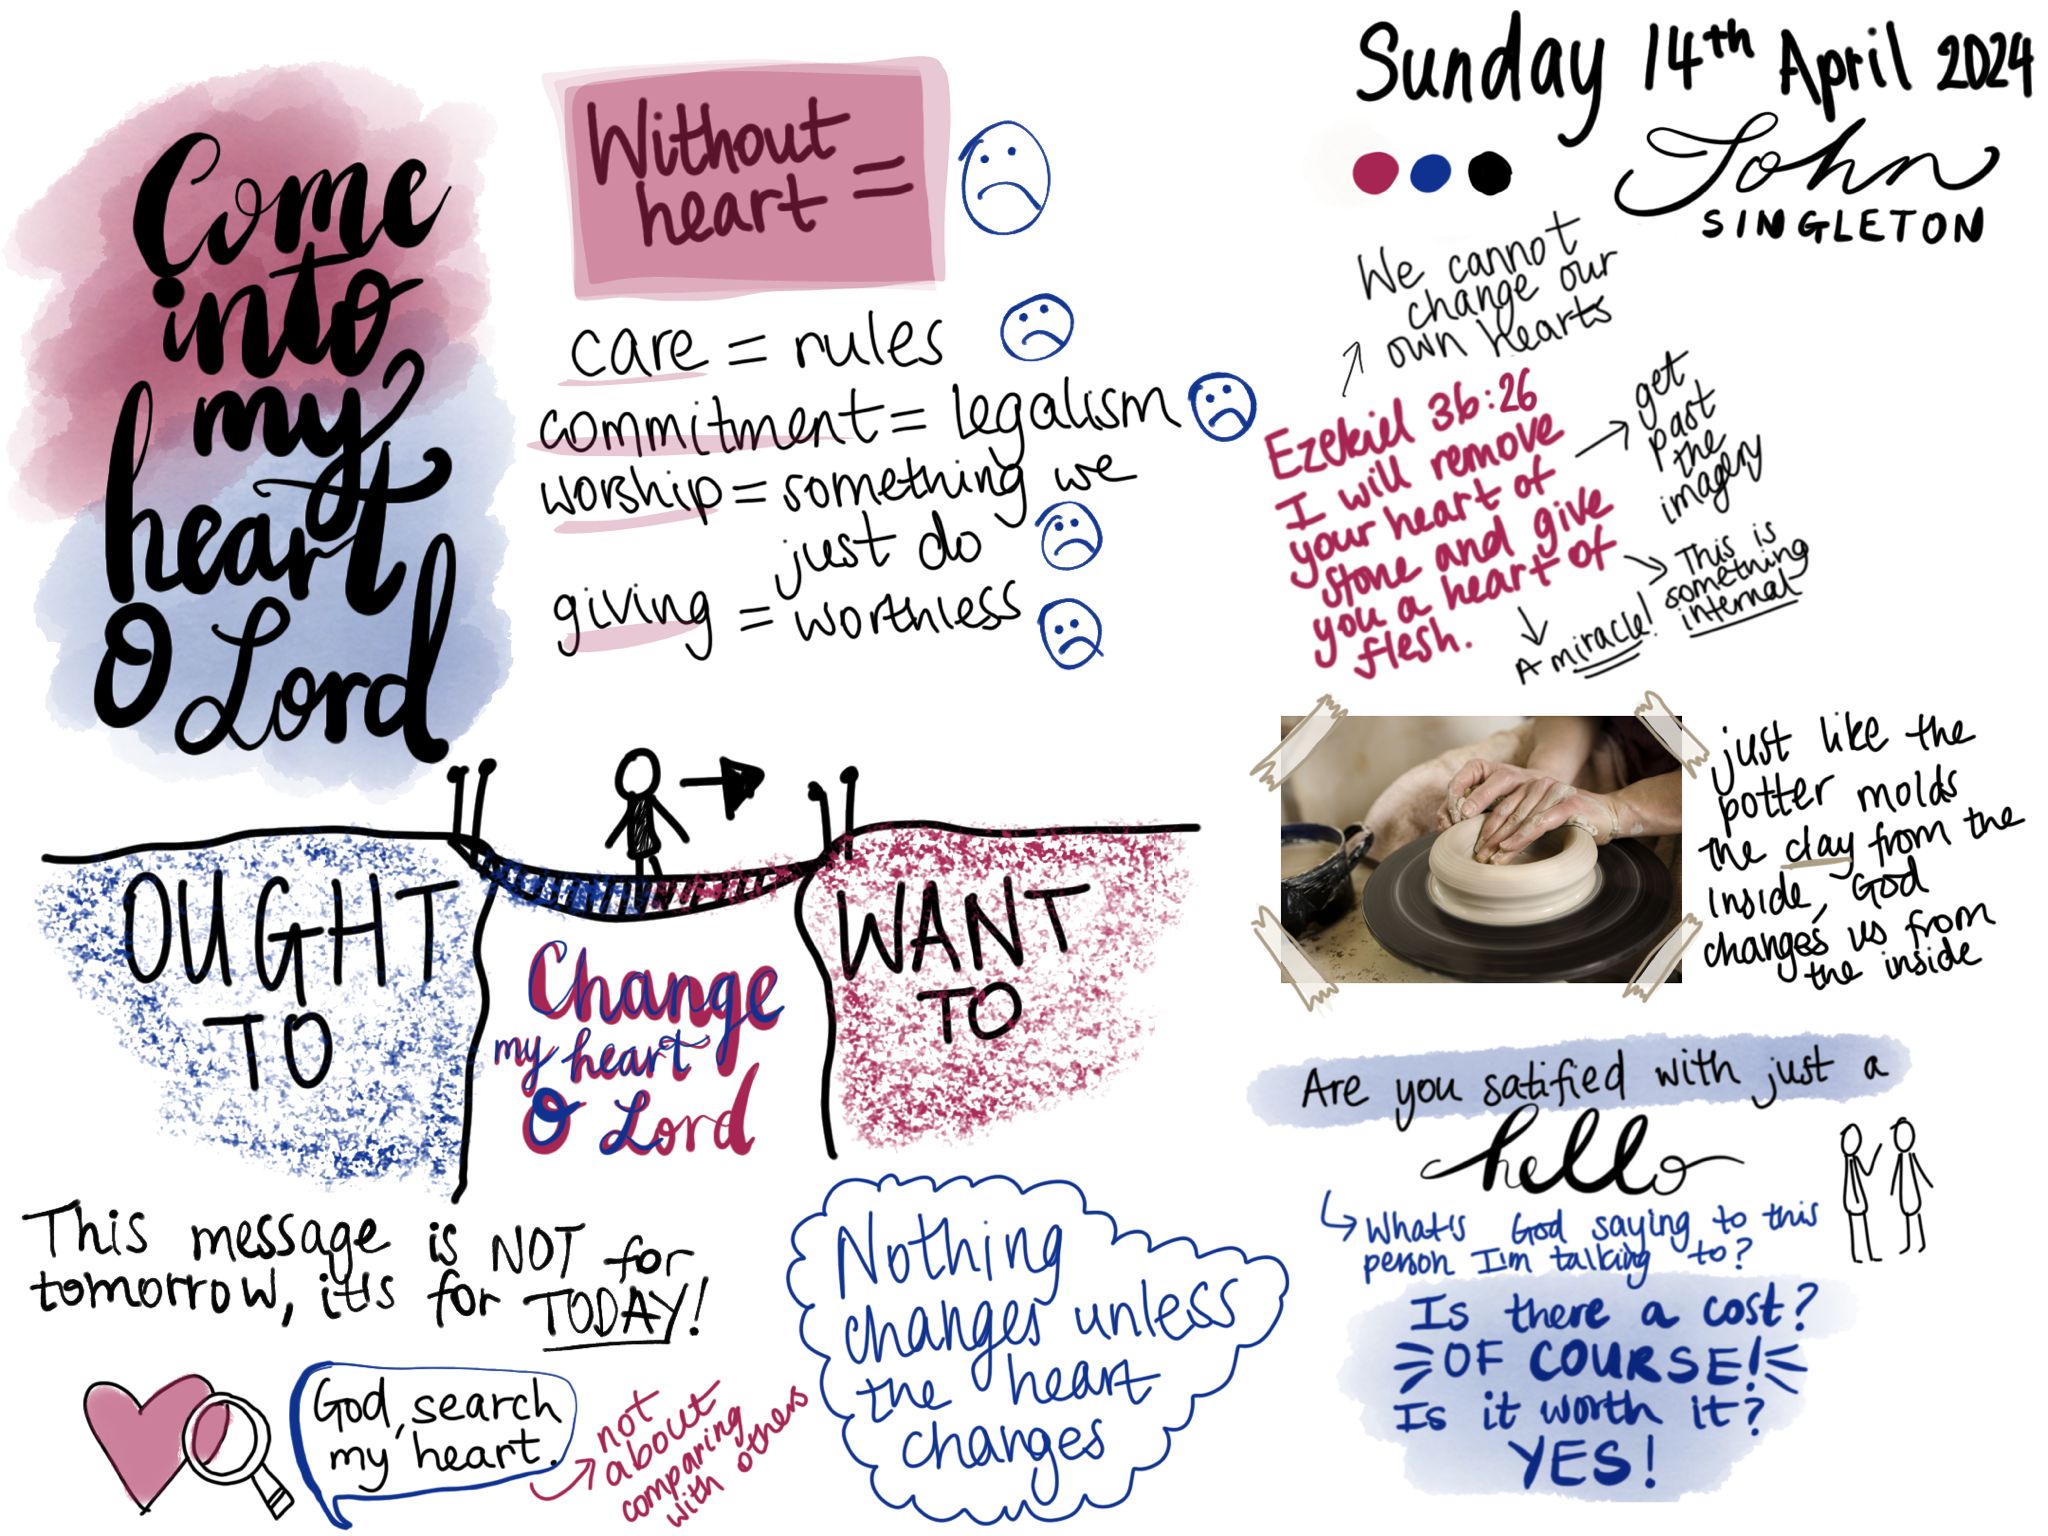 Come
into
my
heart
O Lord
Without
heart =
care = rules
commitment = legalism
worship = something we
just do
giving = worthless
Sunday 14th April 2024
John
SINGLETON
We cannot
change our
own hearts
Ezekiel 36:26
I will remove
your heart of
stone and give
you a heart of
flesh.
get
past
the
imagery
This is
something
internal
A miracle!
just like the
potter molds
the clay from the
inside, God
changes us from
the inside
OUGHT
TO
Change
my heart
O Lord
WANT
TO
Are you satified with just a
hello
What's God saying to this
person I'm talking to?
Is there a cost?
OF COURSE!
Is it worth it?
YES!
This message is NOT for
tomorrow, it's for TODAY!
God, search
my heart.
not
about
comparing
with others
Nothing
changes unless
the heart
changes